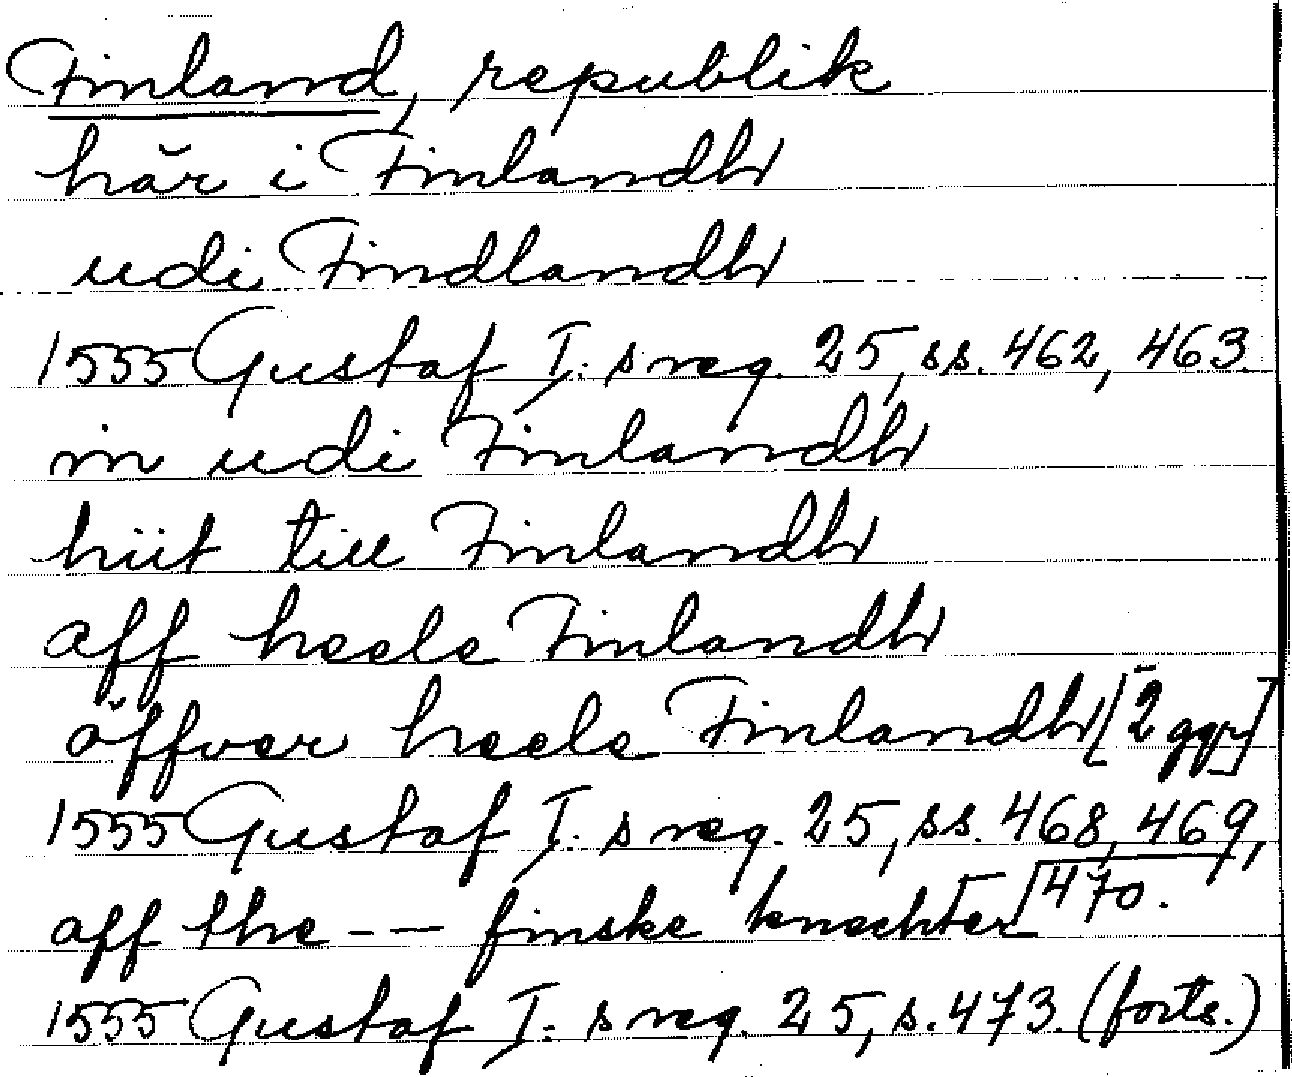 Finland, republik
här i Finlandh
udi Findlandh
1555 Gustaf I:s reg. 25, ss. 462, 463.
in udi Finlandh
hiit till Finlandh
aff heele Finlandh
öffver heele Finlandh [2 ggr]
1555 Gustaf I:s reg. 25, ss. 468, 469,
470.
aff the --- finske knechter
1555 Gustaf I:s reg. 25, s. 473. (forts.)